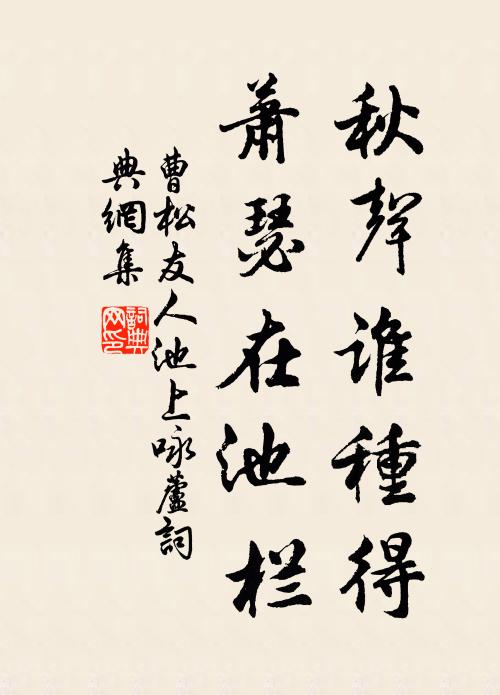 秋聲谁種得
蕭瑟在池栏
曹松友人池上咏蘆詞
典網集
詞典
网印